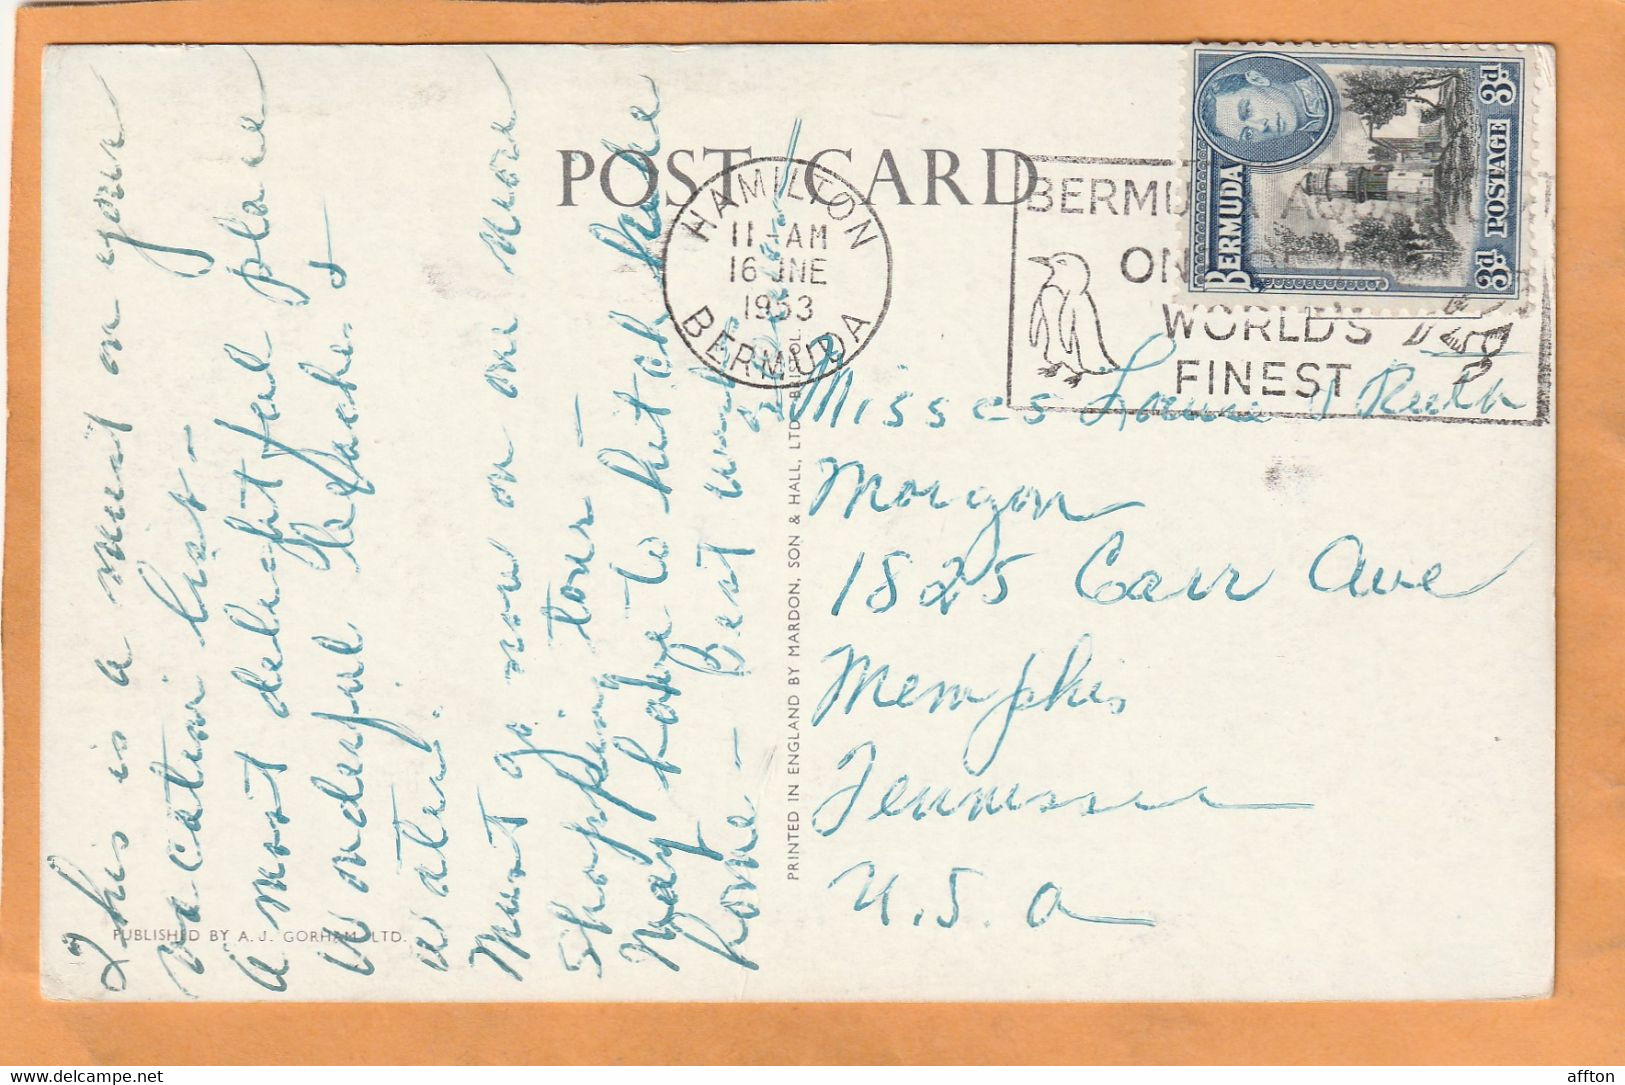 POST CARD
HAMILTON
11-AM
16 JNE
1953
BERMUDA
BERMUDA
ON
WORLD'S
FINEST
3d POSTAGE 3d
BERMUDA
This is a must on your
vacation list -
a most delightful place
wonderful beaches &
water.
Must go now on one more
shopping tour -
May have to hitch hike
home - Best wishes
Misses Louise & Ruth
Morgan
1825 Carr Ave
Memphis
Tennessee
U.S.A
PUBLISHED BY A. J. GORHAM, LTD.
PRINTED IN ENGLAND BY MARDON, SON & HALL, LTD., BRISTOL
affton